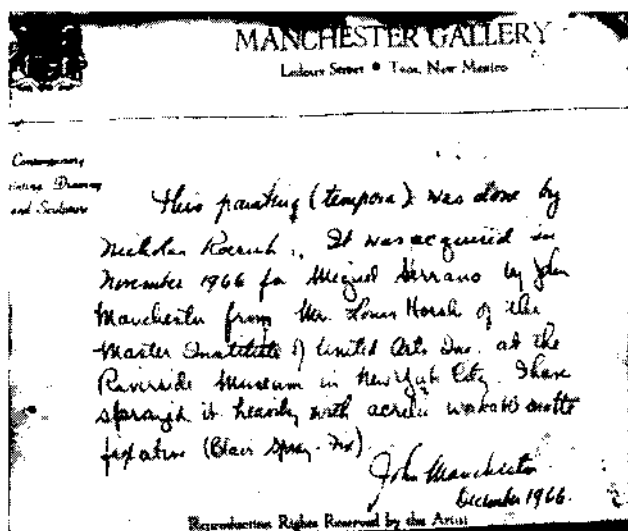 MANCHESTER GALLERY
Ledoux Street • Taos, New Mexico
Contemporary
Painting Drawing
and Sculpture
This painting (tempora) was done by
Nicholas Roerich. It was acquired in
November 1966 for Miguel Serrano by John
Manchester from Mr. Louis Horch of the
Master Institute of United Arts Inc. at the
Riverside Museum in New York City. I have
sprayed it heavily with matte
fixative (Blair Spray-Fix).
John Manchester
December 1966.
Reproduction Rights Reserved by the Artist